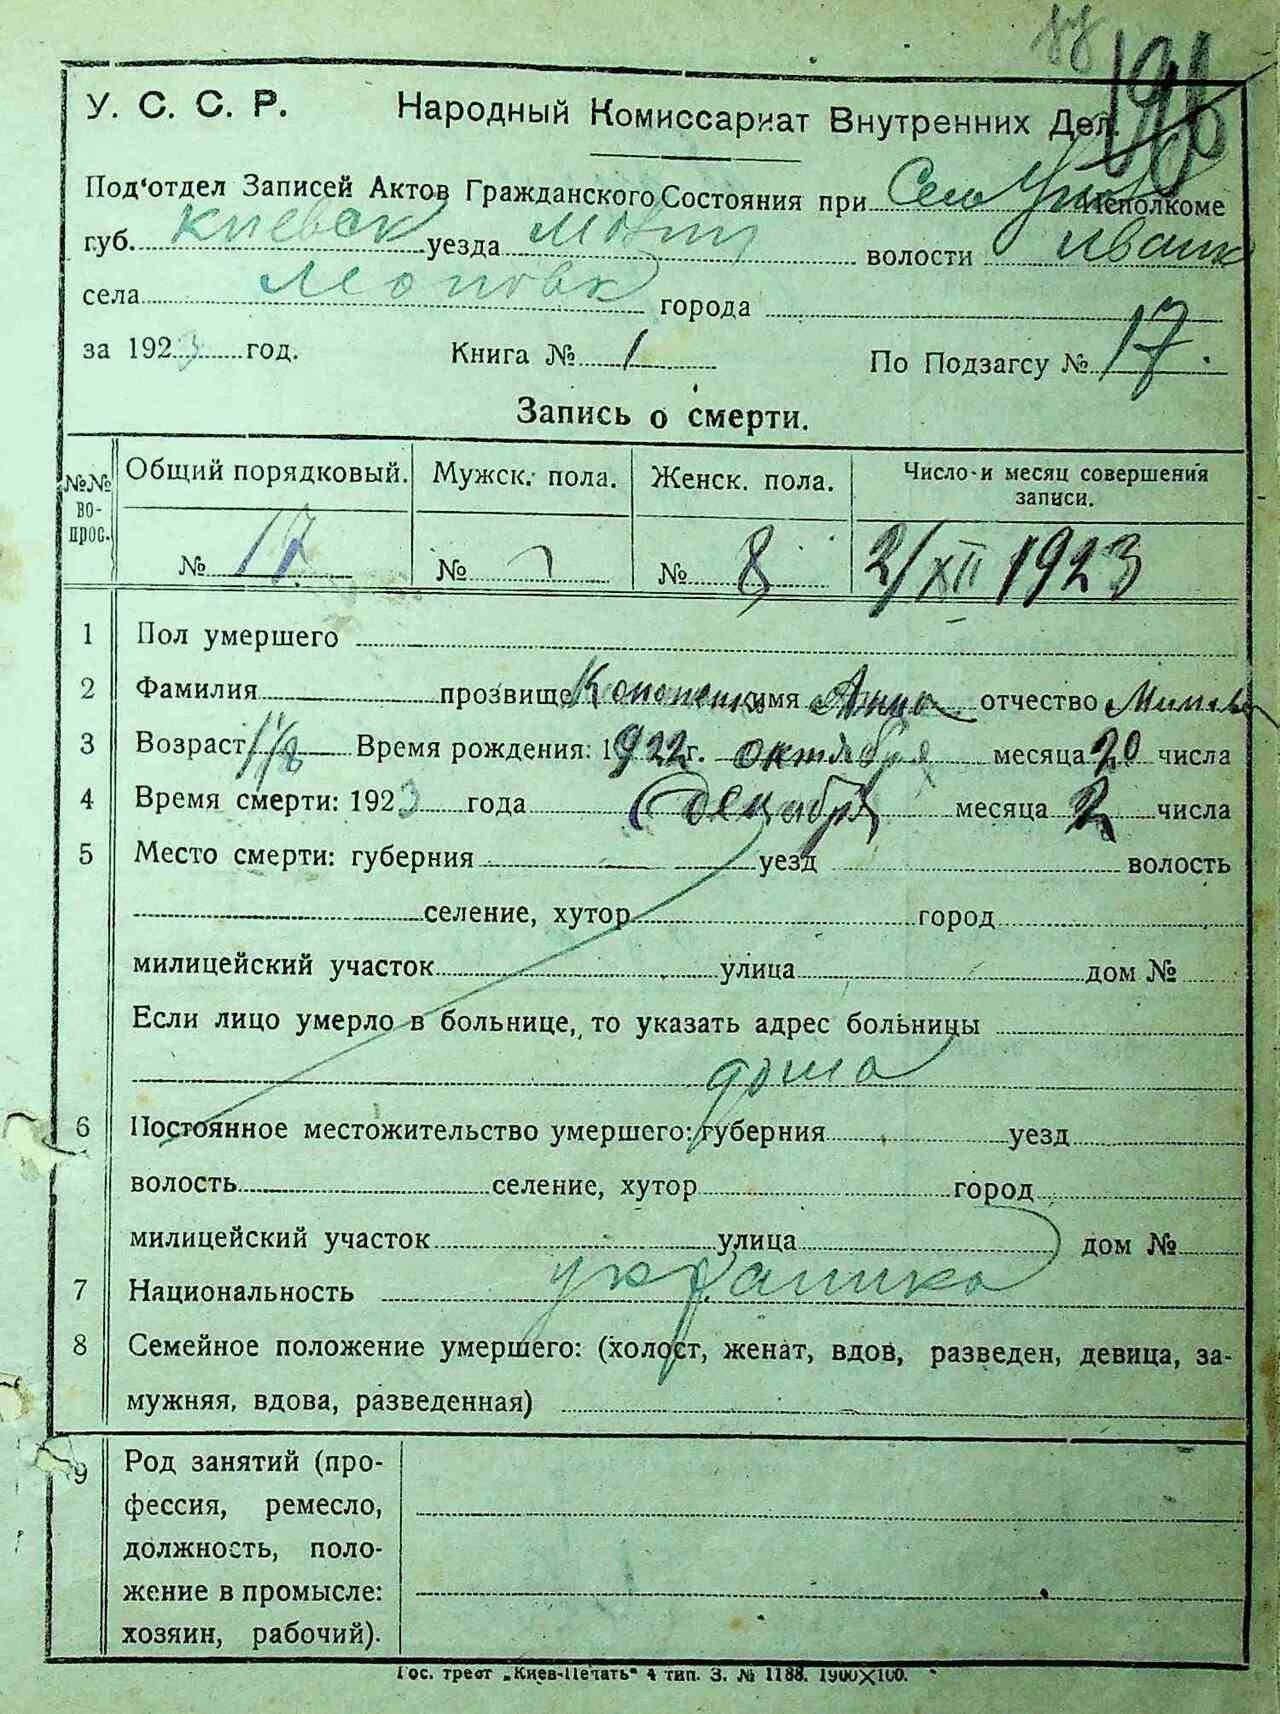 196
У. С. С. Р. Народный Комиссариат Внутренних Дел.
Под'отдел Записей Актов Гражданского Состояния при Исполкоме
губ. Киевск уезда волости Иванк
села города
за 1923 год. Книга № 1 По Подзагсу № 17.
Запись о смерти.
№№ вопрос. Общий порядковый. Мужск. пола. Женск. пола. Число и месяц совершения записи.
№ 17. № № 8 2/XII 1923
1 Пол умершего
2 Фамилия прозвище Кононенко имя Анна отчество
3 Возраст Время рождения: 1922 г. октября месяца 20 числа
4 Время смерти: 1923 года декабря месяца 2 числа
5 Место смерти: губерния уезд волость
селение, хутор город
милицейский участок улица дом №
Если лицо умерло в больнице, то указать адрес больницы
дома
6 Постоянное местожительство умершего: губерния уезд
волость селение, хутор город
милицейский участок улица дом №
7 Национальность украинка
8 Семейное положение умершего: (холост, женат, вдов, разведен, девица, за-
мужняя, вдова, разведенная)
9 Род занятий (про-
фессия, ремесло,
должность, поло-
жение в промысле:
хозяин, рабочий).
Гос. трест „Киев-Печать" 4 тип. З. № 1188. 1900X100.